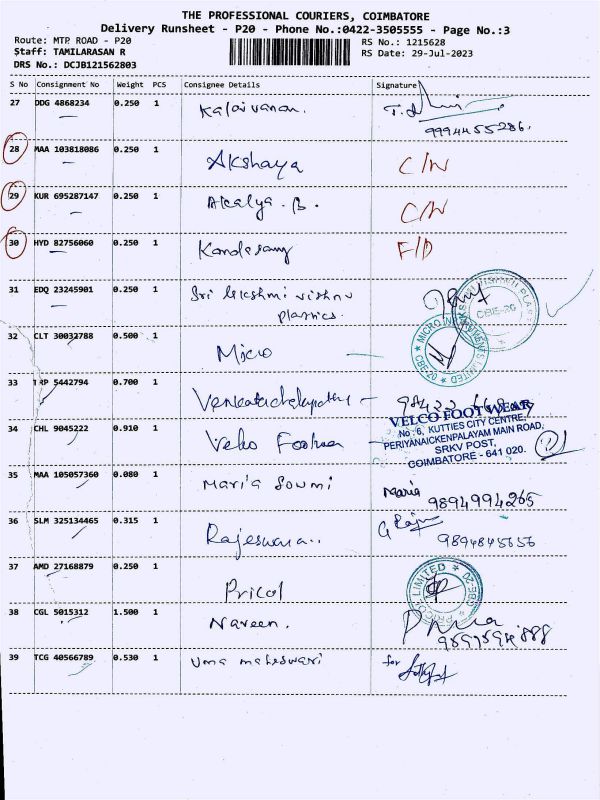 THE PROFESSIONAL COURIERS, COIMBATORE
Delivery Runsheet - P20 - Phone No.:0422-3505555 - Page No.:3
Route: MTP ROAD - P20
RS No.: 1215628
Staff: TAMILARASAN R
RS Date: 29-Jul-2023
DRS No.: DCJB121562803
S No Consignment No Weight PCS Consignee Details Signature
27 DDG 4868234 0.250 1 Kalaivanan.
9994455286.
28 MAA 103818086 0.250 1 Akshaya C/N
29 KUR 695287147 0.250 1 Akalya . B . C/N
30 HYD 82756060 0.250 1 Kandasamy F/D
31 EDQ 23245901 0.250 1 Sri lakshmi vishnu
plastics.
CBE-20
32 CLT 30032788 0.500 1 Micro
CBE-20 ★ MICRO INSTRUMENTS LIMITED ★
33 TRP 5442794 0.700 1 Venkatachalapathy -
34 CHL 9045222 0.910 1 Velco Footwear
VELCO FOOTWEAR
No : 6, KUTTIES CITY CENTRE,
PERIYANAICKENPALAYAM MAIN ROAD,
SRKV POST,
COIMBATORE - 641 020.
35 MAA 105057360 0.080 1 Maria Soumi Maria
9894994265
36 SLM 325134465 0.315 1 Rajeswara..
9894845656
37 AMD 27168879 0.250 1 Pricol
PRICOL LIMITED ★ CBE-20 ★
38 CGL 5015312 1.500 1 Naveen.
39 TCG 40566789 0.530 1 Uma maheswari for